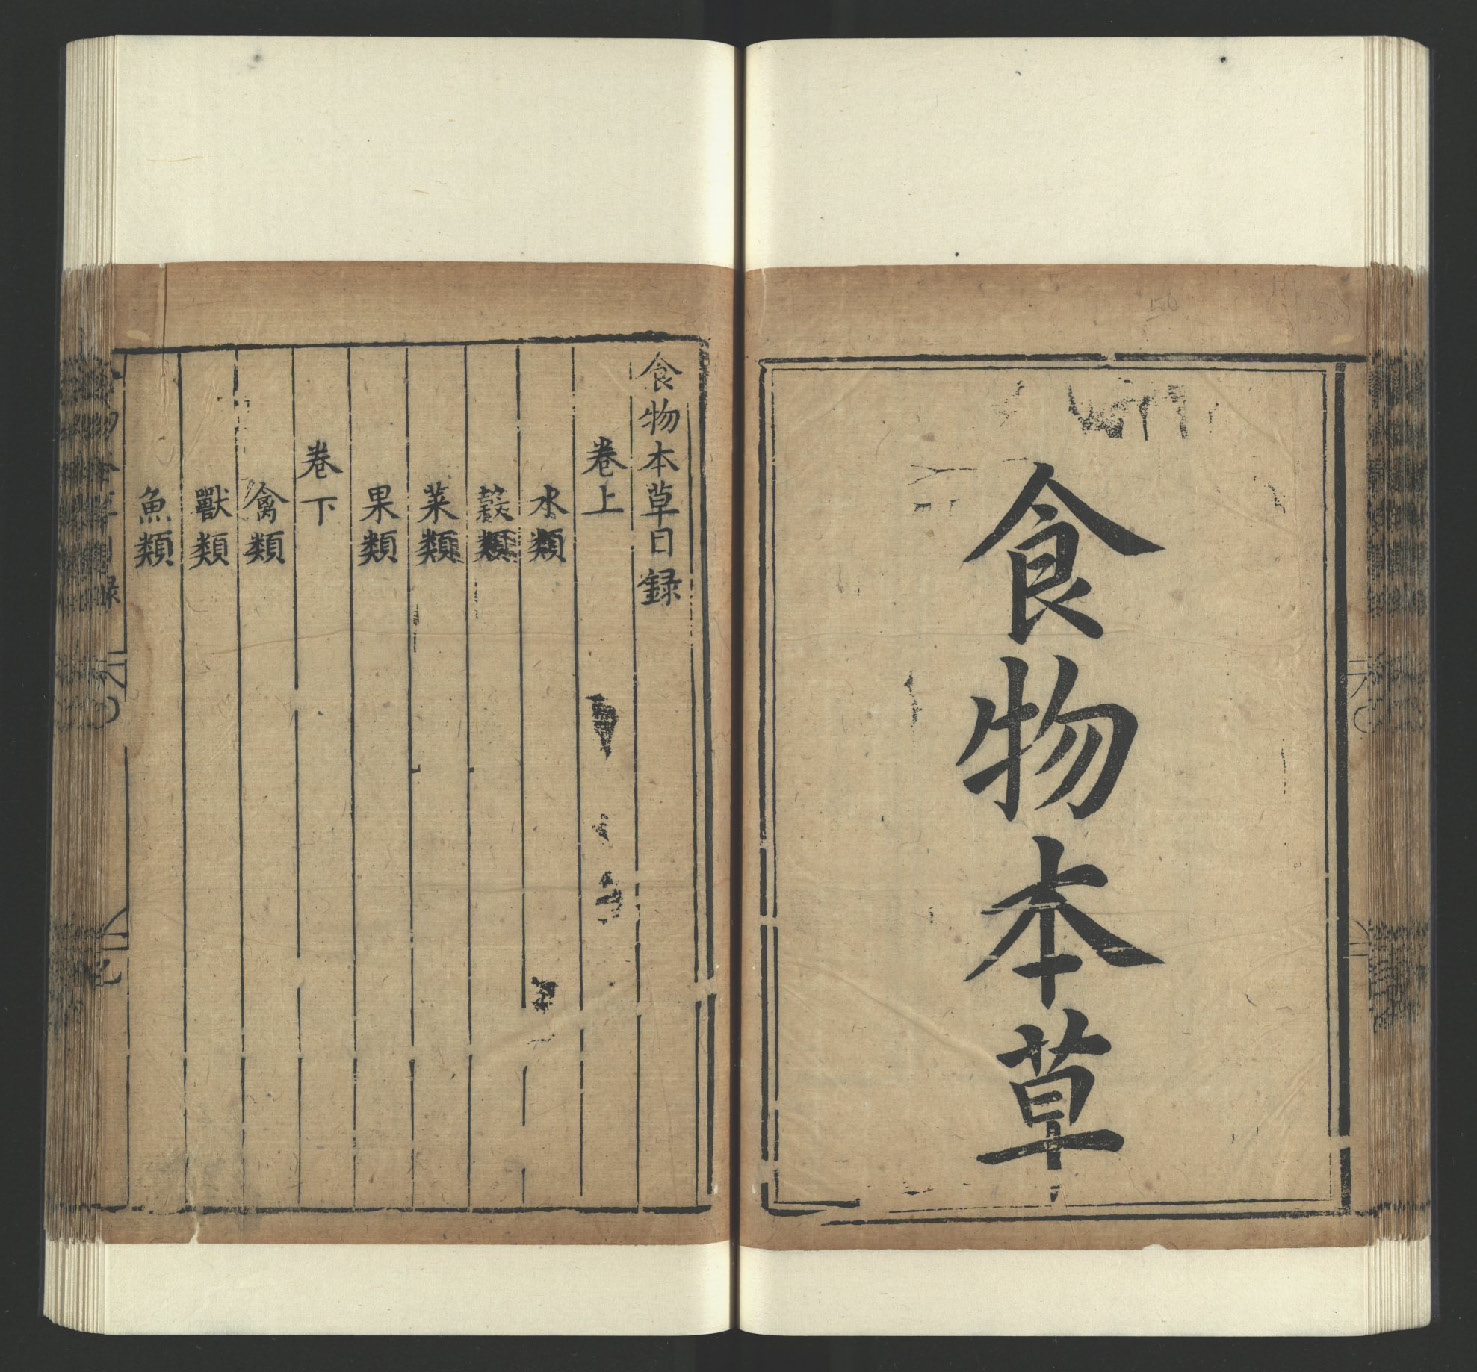 食物本草
食物本草目録
卷上
水類
穀類
菜類
果類
卷下
禽類
獸類
魚類